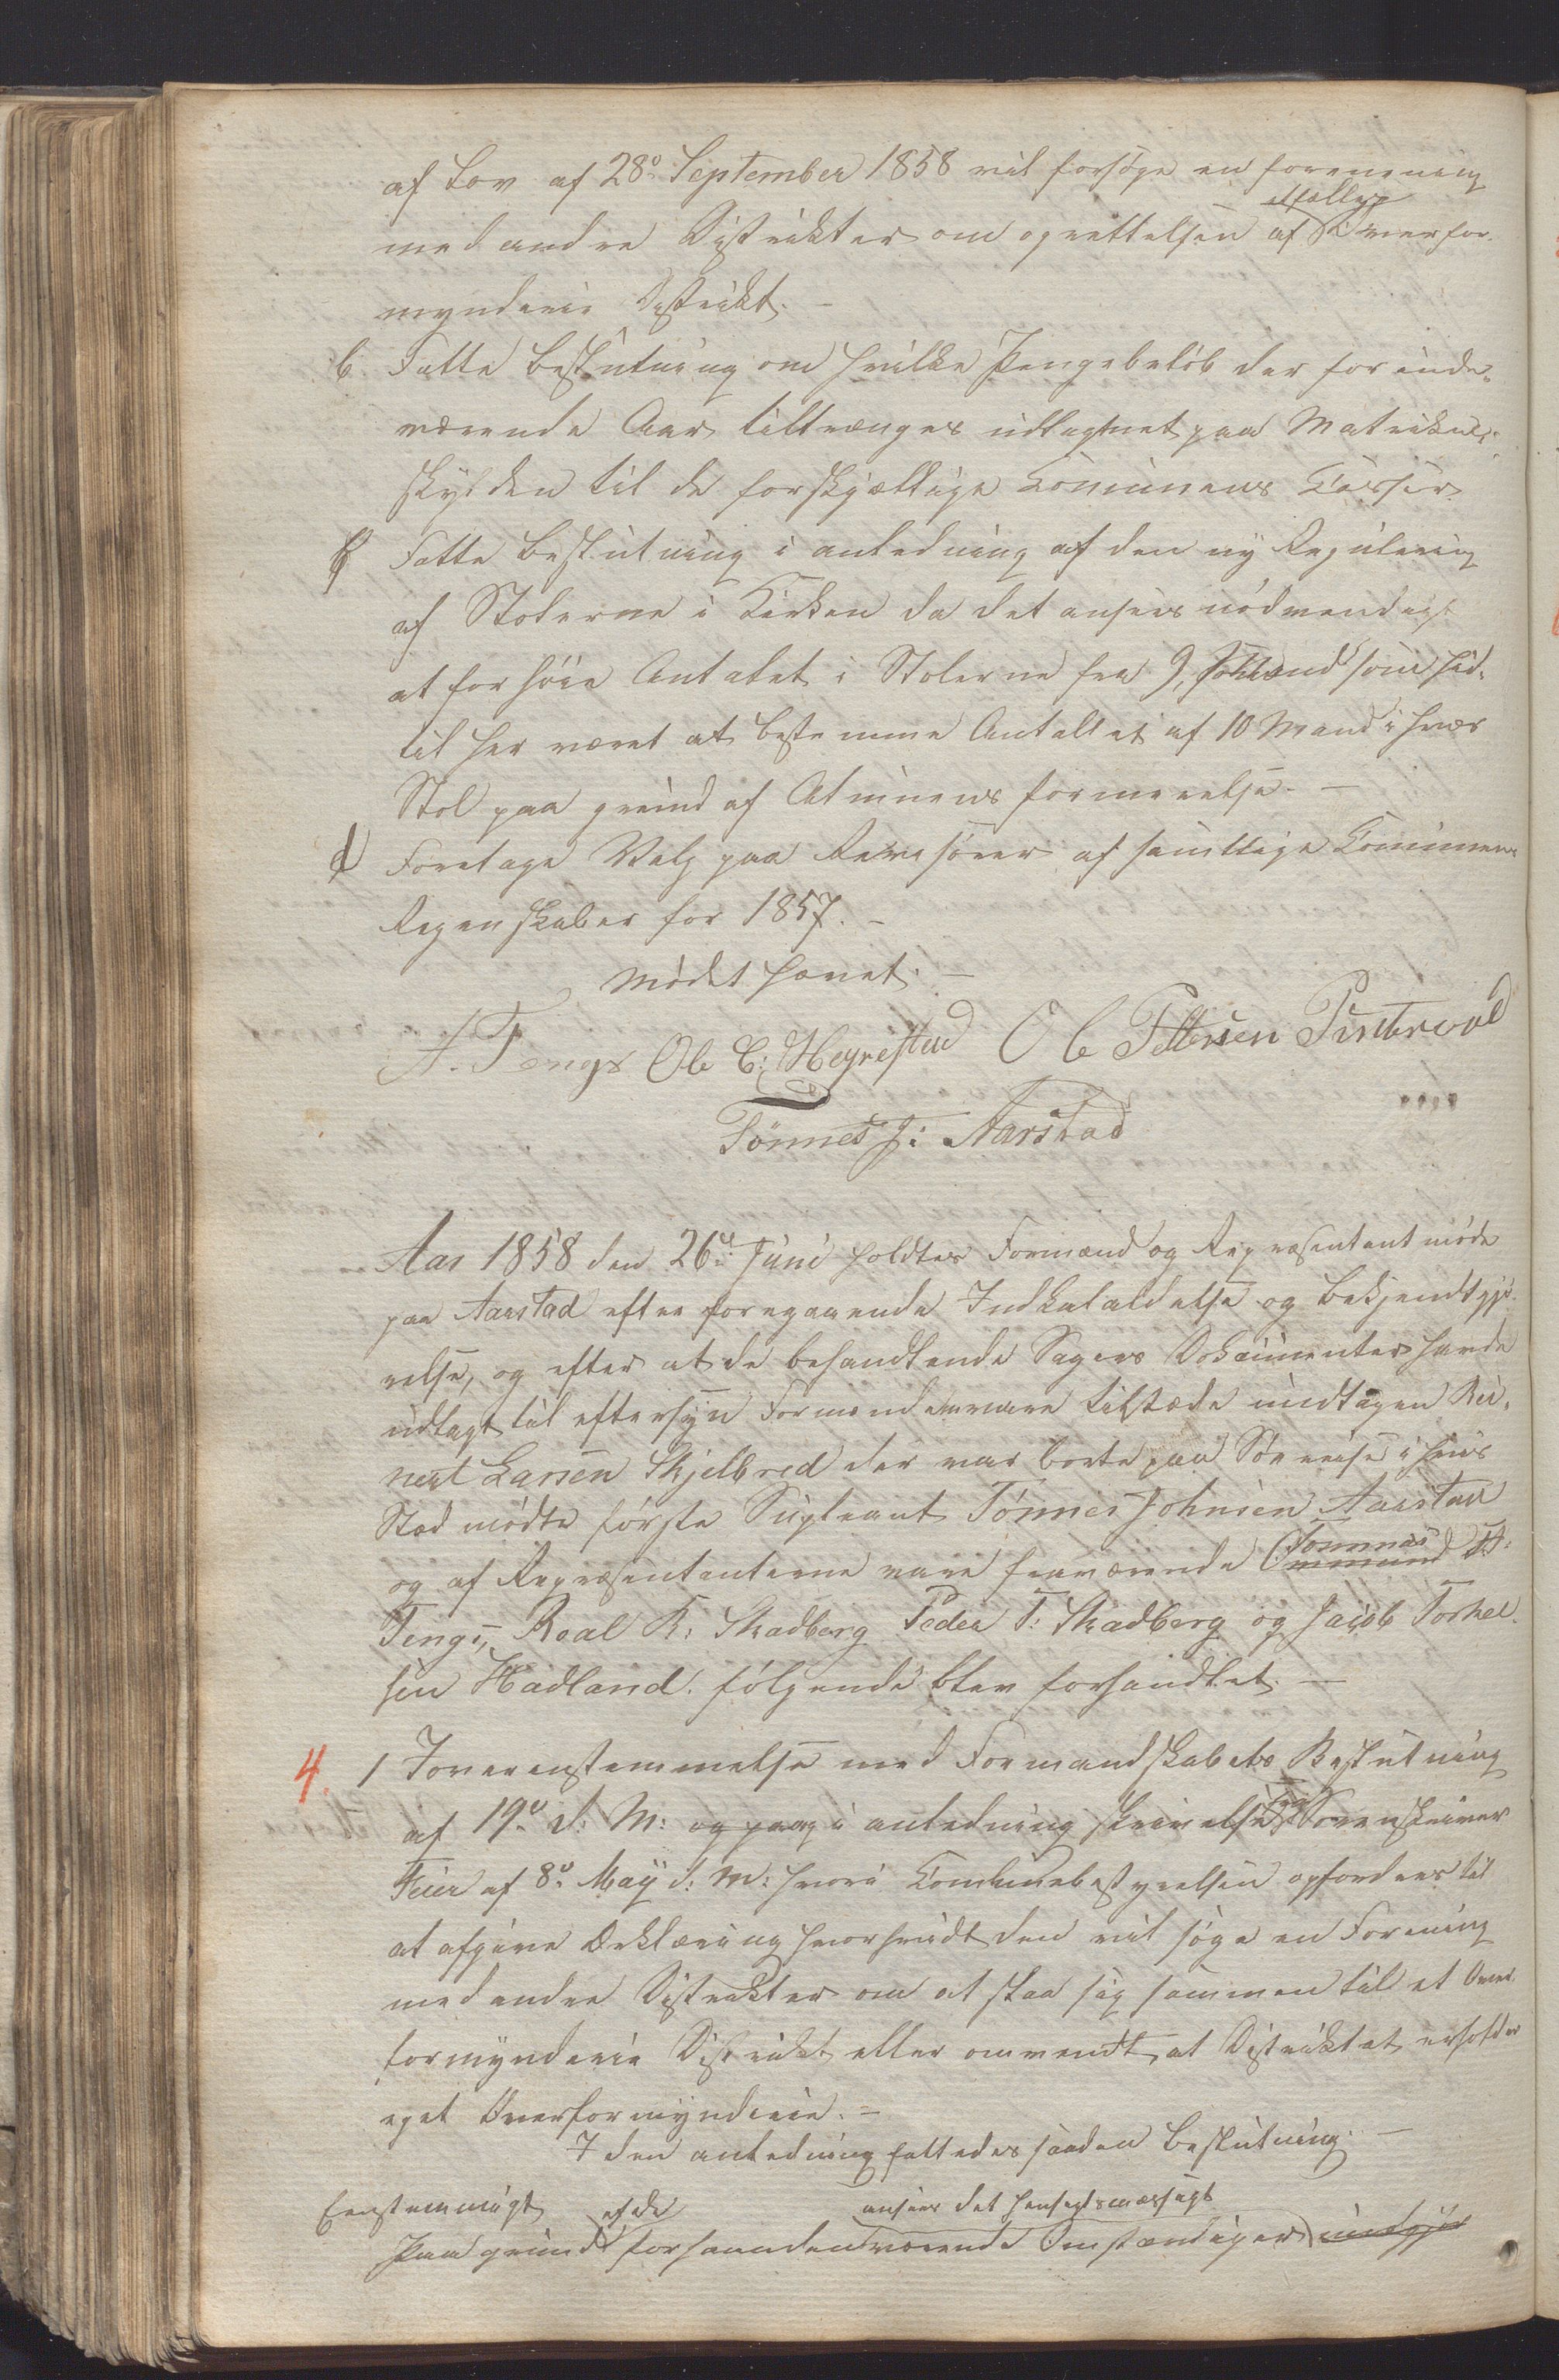 af Lov af 28de September 1858 vil forsøge en forenening
med andre Distrikter om oprettelsen af Overfor-
mynderie Distrikt. -
b. Fatte Beslutning om hvilke Pengebeløb der for inde-
værende Aar tiltrænges udlagnet paa Matrikul-
skylden til de forskjællige Comunens Casser.
Fatte Beslutning i anledning af den ny Regulering
af Stolerne i Kirken da det ansees nødvendigt
at forhøie Antalet i Stolerne fra 9, som hid-
til her været at bestemme Antallet af 10 Mand i hver
Stol paa grund af Almuens formerelse. -
d Foretage Valg paa Revisorer af samtlige Communens
Regenskaber for 1857. -
Mødet hævet. -
A. Tengs Ole C: Hegrestad Ole Pettersen Puntervold
Tønnes J: Aarstad
Aar 1858 den 26de Juni holdtes Formænd og Repræsentant møde
paa Aarstad efter foregaaende Indkalaldelse og Bekjendtgjø-
relse, og efter at de behandlende Sagers Dokumenter havde
udlagt til eftersyn Formændene vare tilstæde undtagen Rei-
nert Larsen Skjelbred der var borte paa Søe reise i hvis
Sted mødte første Supleant Tønnes Johnsen Aarstad
og af Repræsentanterne vare fraværende Tønnes A:
Tengs, Roal R: Skadberg Peder T: Skadberg og Jacob Torkel-
sen Hadland. følgende blev forhandlet. -
4. 1 Foverenstemmelse med Formandskabets Beslutning
af 19de d: M: og paag i anledning skrivelse fra Sorenskriver
Feier af 8de May d: M: hvori Comunebestyrelsen opfordres til
at afgive Erklæring hvorhvidt den vil søge en Forening
med andre Distrikter om at slaa sig sammen til et Over
formynderie Distrikt eller omvendt, at Distriktet erholder
eget Overformynderie. -
I den anledning fattedes saaden Beslutning. -
Eenstemmigt af de ansees det hensigtsmæssigt
Paa grund forhaanden værende Omstændiger